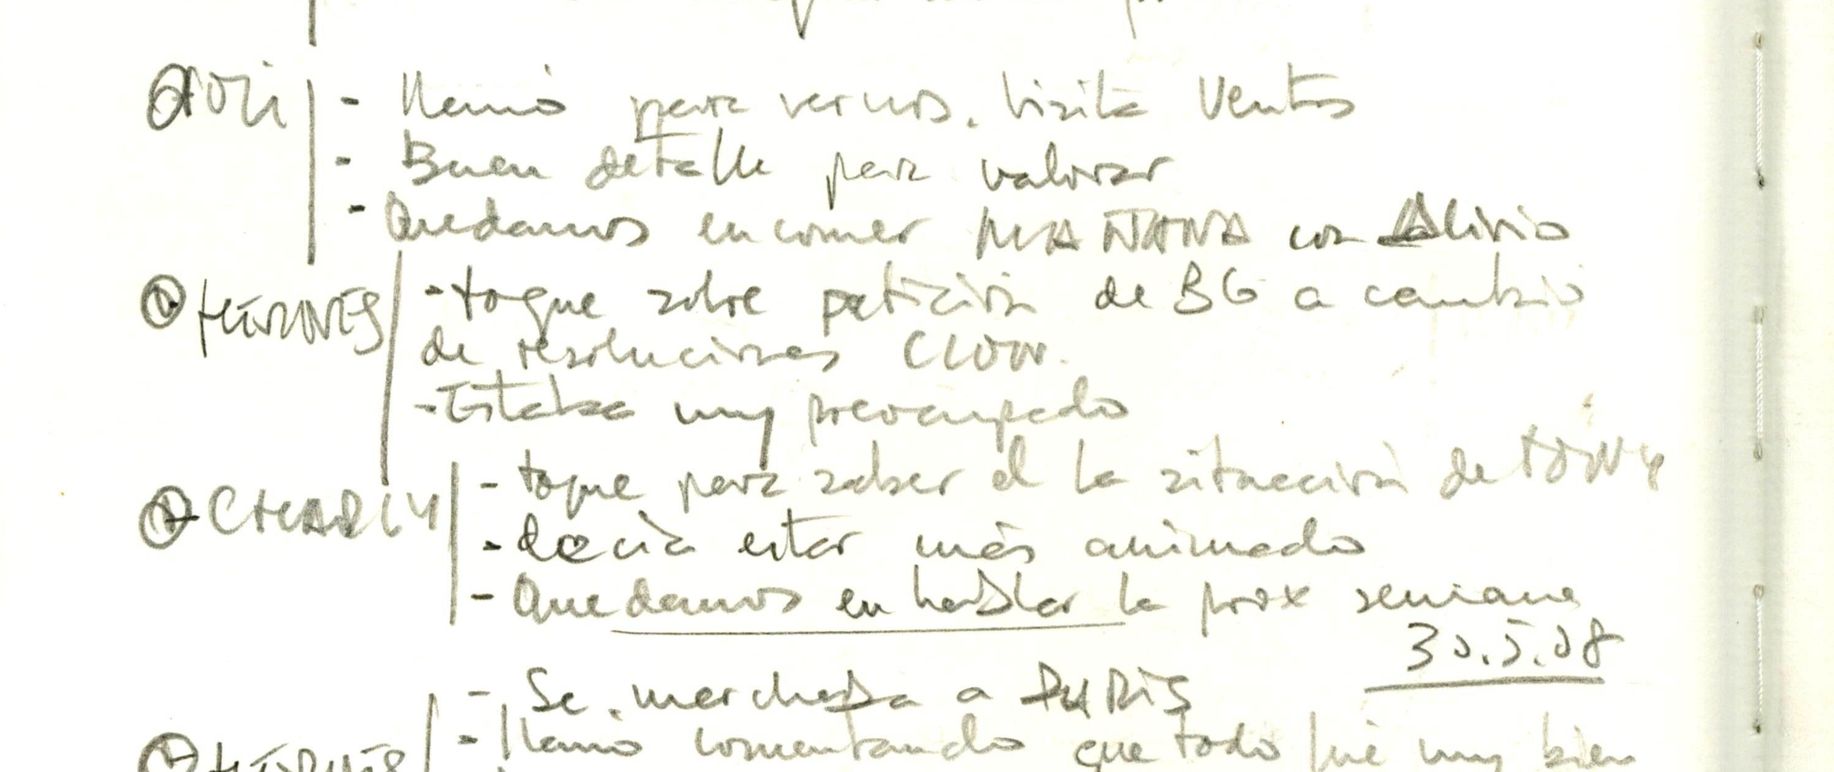 - Llamó para vernos. Visita Ventos
- Buen detalle para valorar
- Quedamos en comer MAÑANA con Alivio
HERMES - toque sobre petición de BG a cambio
de resoluciones
- Estaba muy preocupado
CHARLY - toque para saber d la situación de TONY
- decía estar más animado
- Quedamos en hablar la prox semana
30.5.08
- Se marchaba a PARIS
HERMES - llamó comentando que todo fué muy bien